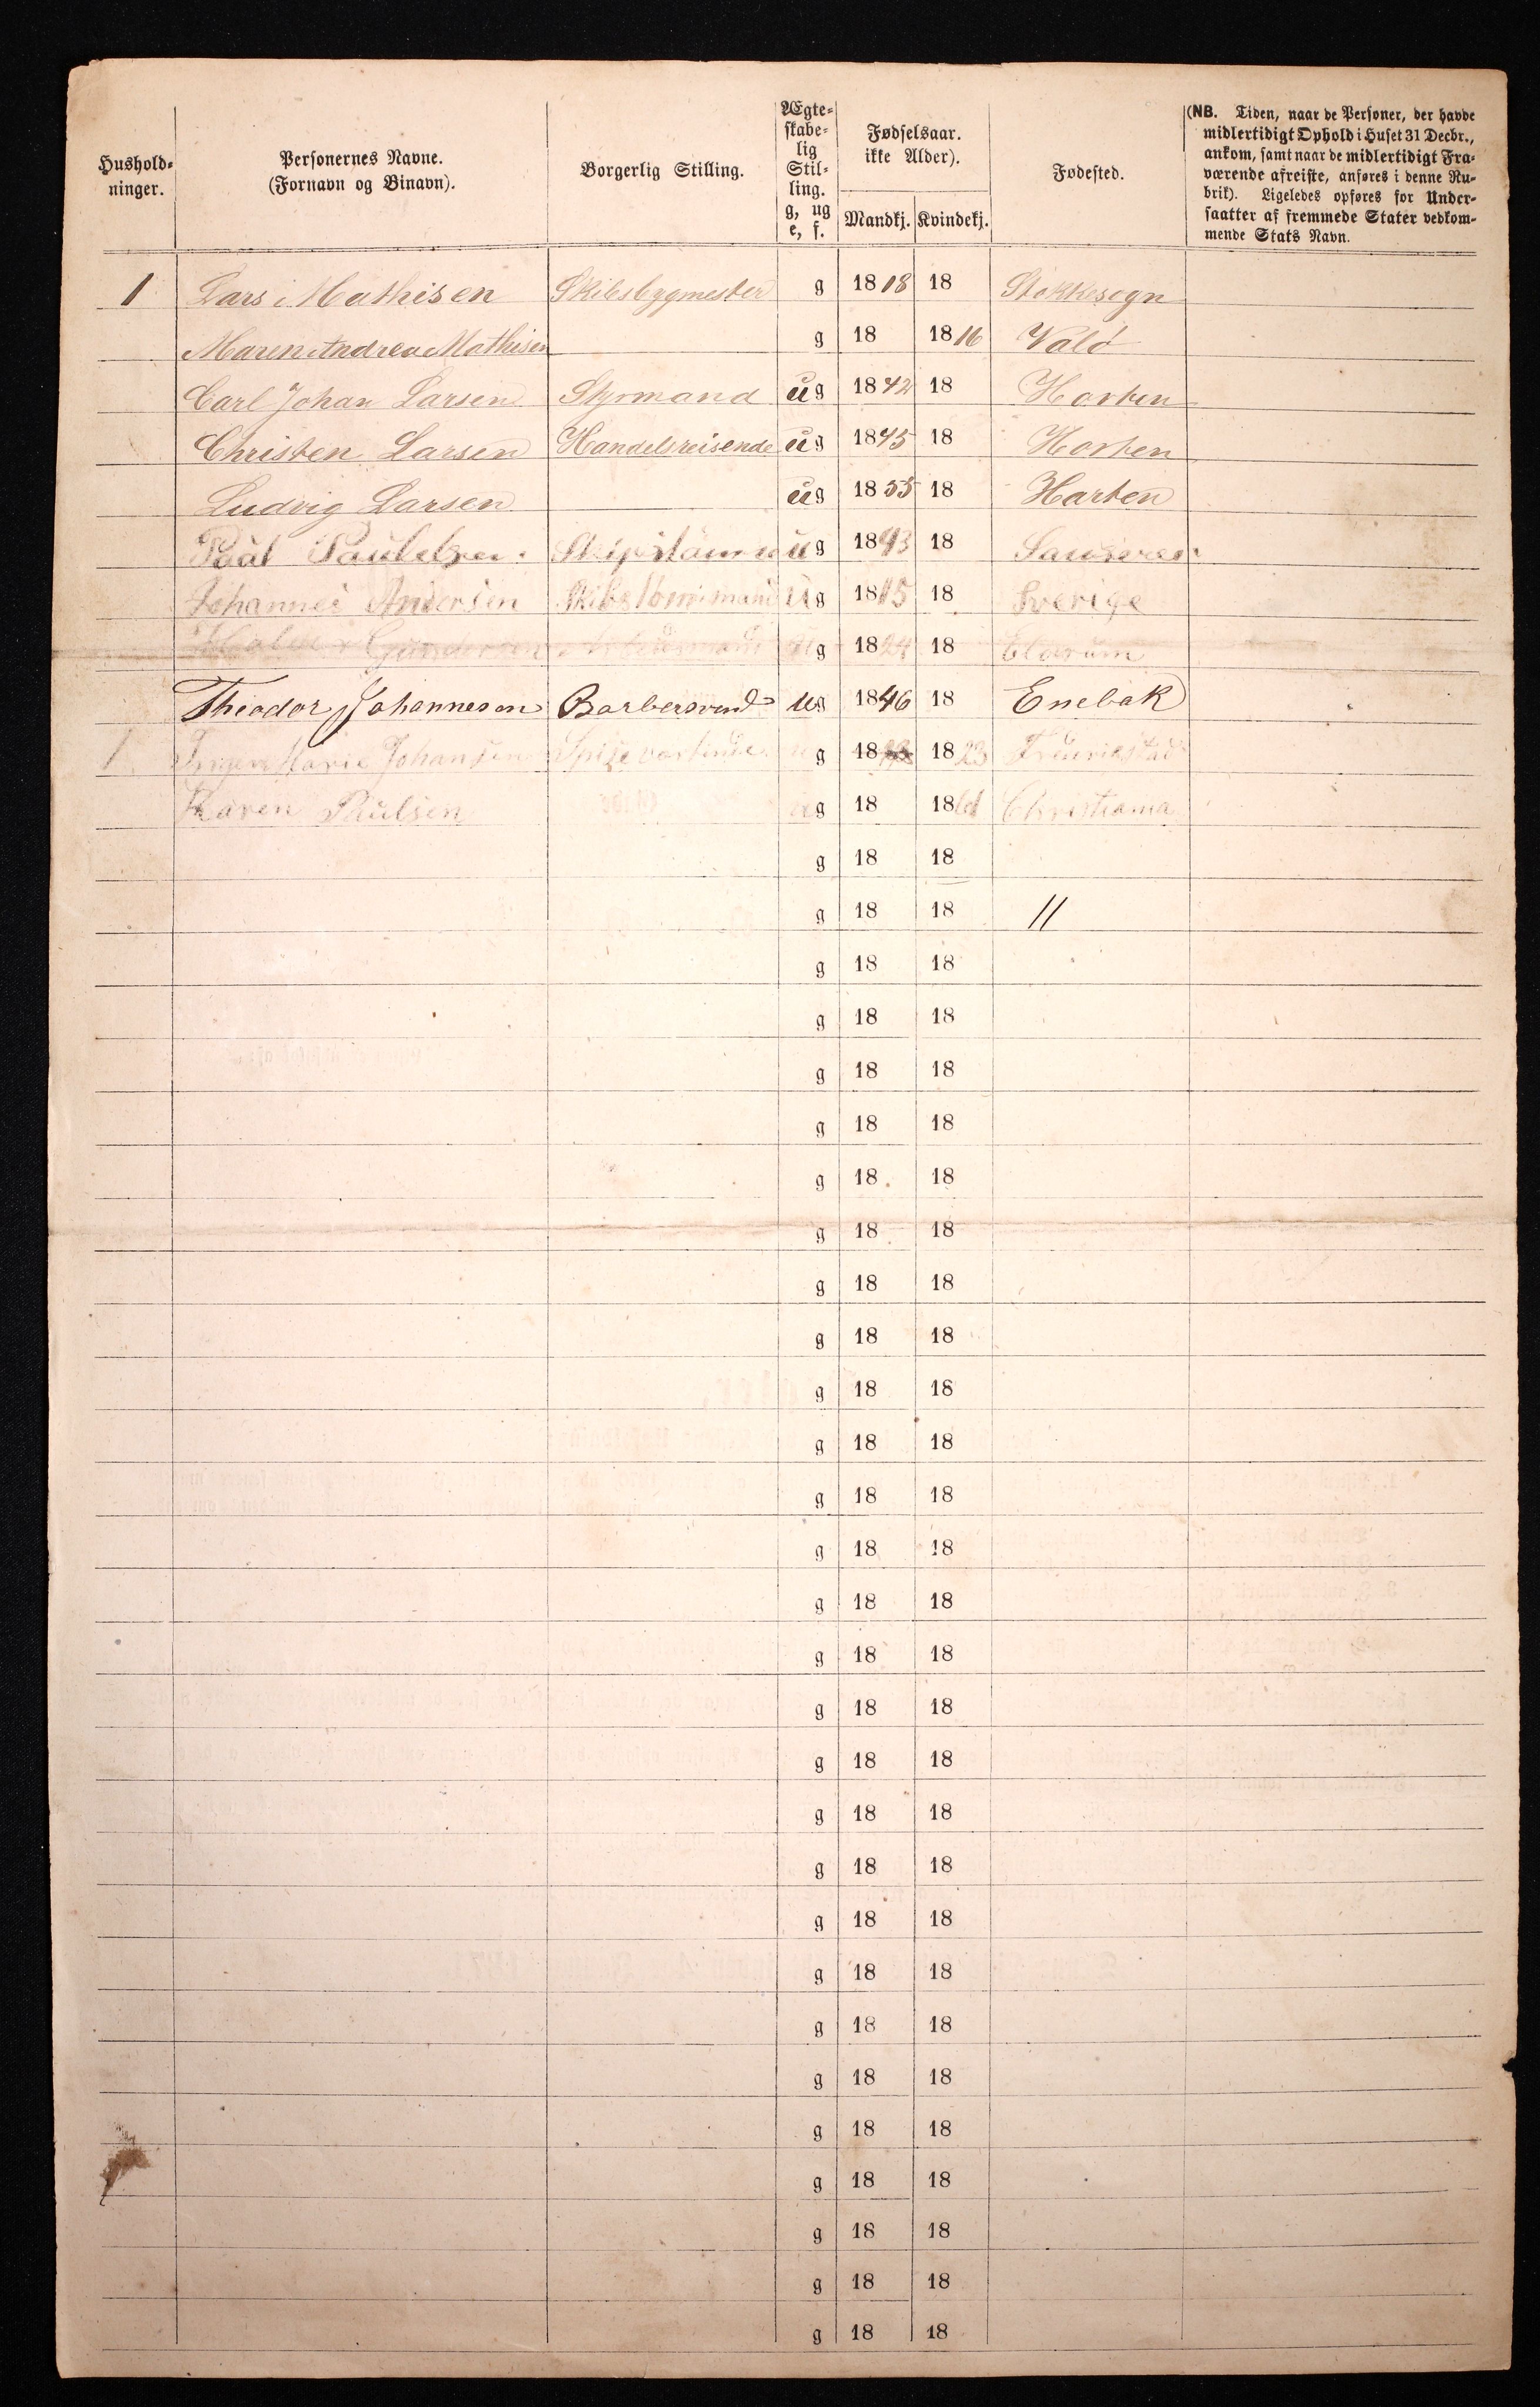 Hushold-
ninger.
Personernes Navne.
(Fornavn og Binavn).
Borgerlig Stilling.
Ægte-
skabe-
lig
Stil-
ling.
g, ug
e, f.
Fødselsaar.
ikke Alder).
Mandkj. Kvindekj.
Fødested.
(NB. Tiden, naar de Personer, der havde
midlertidigt Ophold i Huset 31 Decbr.,
ankom, samt naar de midlertidigt Fra-
værende afreiste, anføres i denne Ru-
brik). Ligeledes opføres for Under-
saatter af fremmede Stater vedkom-
mende Stats Navn.
1 Lars Mathisen Skibsbygmester g 1818 18 Stokkesogn
Maren Andrea Mathisen g 18 1816 Valø
Carl Johan Larsen Styrmand ug 1842 18 Horten
Christen Larsen Handelsreisende ug 1845 18 Horten
Ludvig Larsen ug 1855 18 Harten
Paul ug 1843 18
Johannes Andersen ug 1815 18 Sverige
Gundersen g 1824 18
Theodor Johannesen Barbersvend ug 1846 18 Enebak
1 Marie Johansen Spisevartinde g 18 1823
Karen Paulsen ug 18 18 Christiania
g 18 18
g 18 18 11
g 18 18
g 18 18
g 18 18
g 18 18
g 18 18
g 18 18
g 18 18
g 18 18
g 18 18
g 18 18
g 18 18
g 18 18
g 18 18
g 18 18
g 18 18
g 18 18
g 18 18
g 18 18
g 18 18
g 18 18
g 18 18
g 18 18
g 18 18
g 18 18
g 18 18
g 18 18
g 18 18